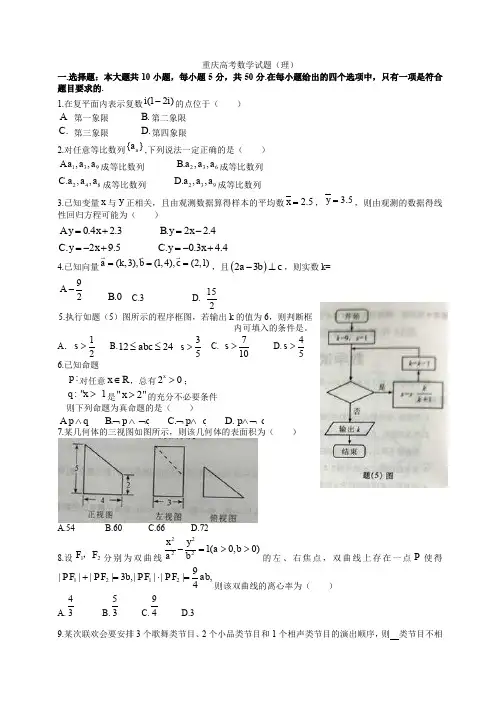 重庆高考数学试题（理）
一.选择题：本大题共10小题，每小题5分，共50分.在每小题给出的四个选项中，只有一项是符合
题目要求的.
1.在复平面内表示复数i(1−2i)的点位于（ ）
A. 第一象限 B.第二象限
C. 第三象限 D.第四象限
2.对任意等比数列{aₙ},下列说法一定正确的是（ ）
A.a₁,a₃,a₉成等比数列 B.a₂,a₃,a₆成等比数列
C.a₂,a₄,a₈成等比数列 D.a₃,a₆,a₉成等比数列
3.已知变量x与y正相关，且由观测数据算得样本的平均数x̄=2.5，ȳ=3.5，则由观测的数据得线
性回归方程可能为（ ）
A.y=0.4x+2.3 B.y=2x−2.4
C.y=−2x+9.5 C.y=−0.3x+4.4
4.已知向量a=(k,3),b=(1,4),c=(2,1)，且(2a−3b)⊥c，则实数k=
A.−9/2 B.0 C.3 D. 15/2
5.执行如题（5）图所示的程序框图，若输出k的值为6，则判断框
内可填入的条件是。
A．s>1/2 B.12≤abc≤24 s>3/5 C. s>7/10 D.s>4/5
6.已知命题
p:对任意x∈R，总有2ˣ>0；
q:"x>1是"x>2"的充分不必要条件
则下列命题为真命题的是（ ）
A.p∧q B.¬p∧¬q C.¬p∧q D.p∧¬q
7.某几何体的三视图如图所示，则该几何体的表面积为（ ）
5
2
4
3
正视图 左视图 俯视图
A.54 B.60 C.66 D.72
开始
k=9，s=1
是
k=k−1
否
输出k
结束
题(5)图
8.设F₁，F₂分别为双曲线x²/a²−y²/b²=1(a>0,b>0)的左、右焦点，双曲线上存在一点P使得
|PF₁|+|PF₂|=3b,|PF₁|·|PF₂|=9/4 ab,则该双曲线的离心率为（ ）
A.4/3 B.5/3 C.9/4 D.3
9.某次联欢会要安排3个歌舞类节目、2个小品类节目和1个相声类节目的演出顺序，则 类节目不相